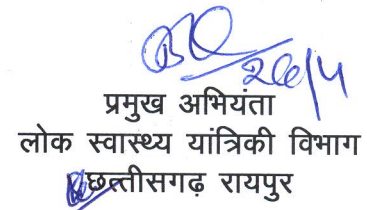 26/4
प्रमुख अभियंता
लोक स्वास्थ्य यांत्रिकी विभाग
छत्तीसगढ़ रायपुर